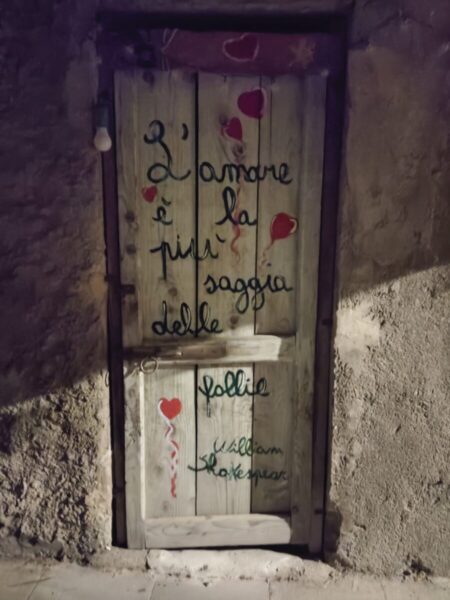 L'amare
è la
più
saggia
delle
follie
William
Shakespear